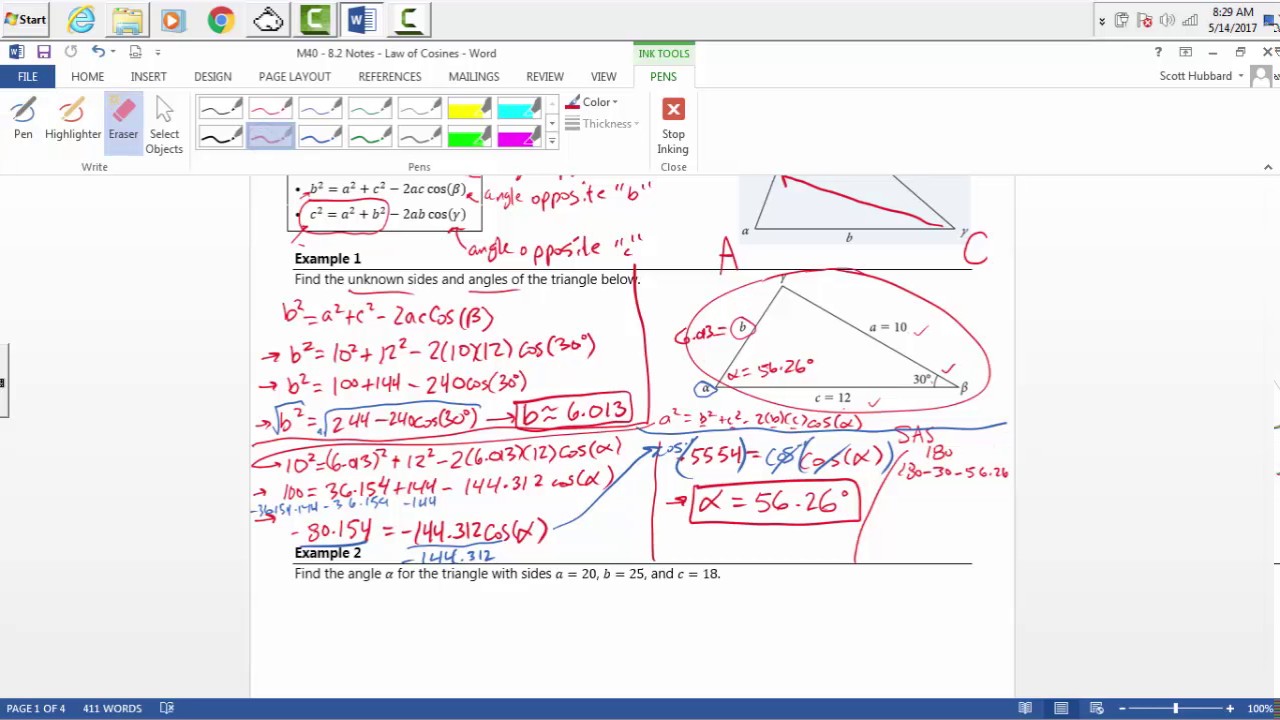 Start
8:29 AM
5/14/2017
M40 - 8.2 Notes - Law of Cosines - Word
INK TOOLS
?
FILE HOME INSERT DESIGN PAGE LAYOUT REFERENCES MAILINGS REVIEW VIEW PENS
Scott Hubbard
Pen Highlighter Eraser Select Objects
Color
Thickness
Stop Inking
Write Pens Close
• b² = a² + c² − 2ac cos(β)
angle opposite "b"
• c² = a² + b² − 2ab cos(γ)
angle opposite "c"
α b γ
A C
Example 1
Find the unknown sides and angles of the triangle below.
b² = a² + c² - 2ac Cos(β)
→ b² = 10² + 12² - 2(10)(12) cos(30°)
→ b² = 100 + 144 - 240cos(30°)
→ √b² = √244 - 240cos(30°) → b ≈ 6.013
γ
6.013 = b
a = 10
α = 56.26°
α 30° β
c = 12
a² = b² + c² - 2(b)(c)cos(α)
10² = (6.013)² + 12² - 2(6.013)(12)cos(α)
→ 100 = 36.154 + 144 - 144.312 cos(α)
-36.154-144 -36.154 -144
→ -80.154 = -144.312cos(α)
-144.312
cos⁻¹(.5554) = cos⁻¹(cos(α))
→ α = 56.26°
SAS
180
180-30-56.26
Example 2
Find the angle α for the triangle with sides a = 20, b = 25, and c = 18.
PAGE 1 OF 4 411 WORDS
100%